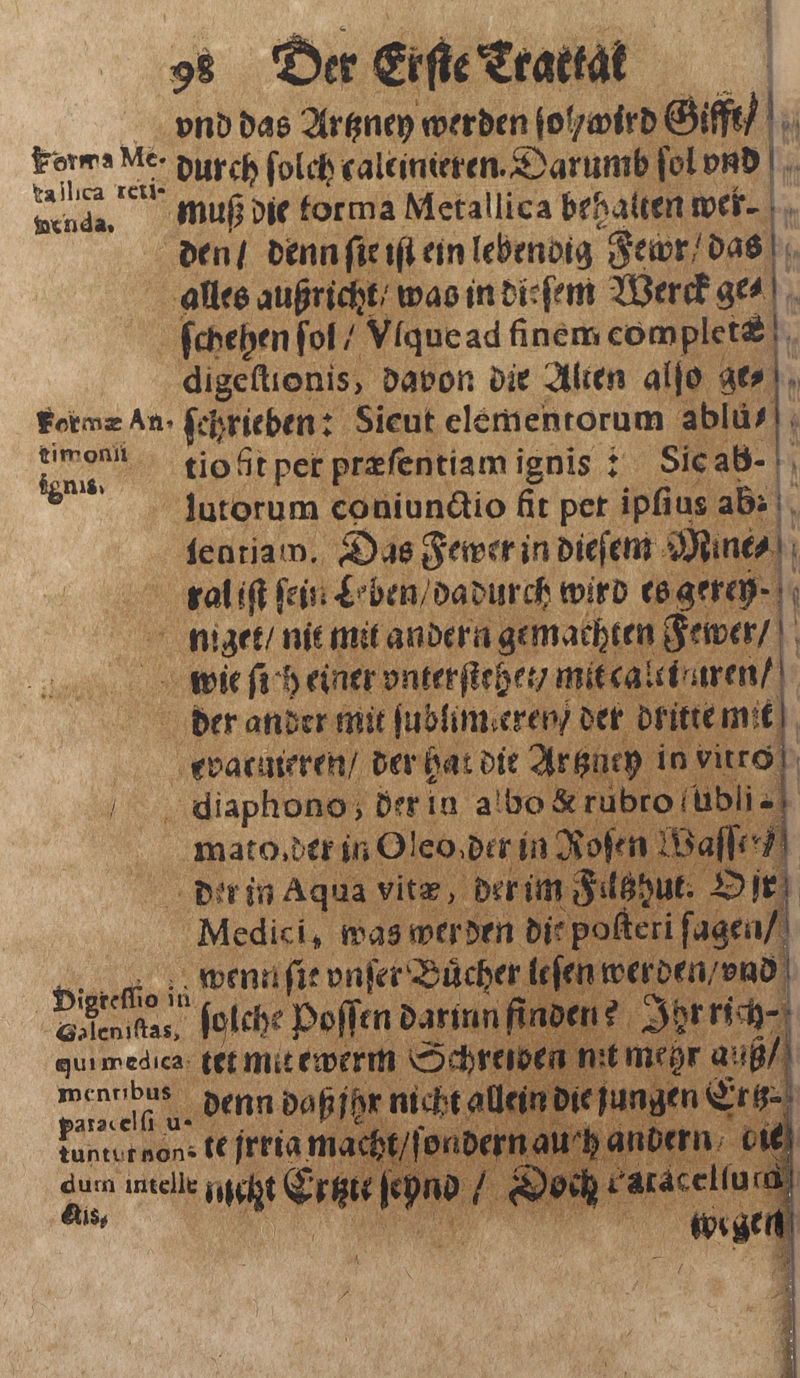 98 Der Erste Tractat
vnd das Artzney werden sol/ wird Gifft/
durch solch calcinieren. Darumb sol vnd
muß die forma Metallica behalten wer-
den/ denn sie ist ein lebendig Fewr/ das
alles außricht/ was in diesem Werck ge-
schehen sol / Vsque ad finem completæ
digestionis, davon die Alten also ge-
schrieben: Sicut elementorum ablu-
tio fit per præsentiam ignis : Sic ab-
lutorum coniunctio fit per ipsius ab-
sentiam. Das Fewer in diesem Mine-
ral ist sein Leben/ dadurch wird es gerey-
niget/ nit mit andern gemachten Fewer/
wie sich einer vnterstehet/ mit calciniren/
der ander mit sublimieren/ der dritte mit
evacuieren/ der hat die Artzney in vitro
diaphono, der in albo & rubro subli-
mato, der in Oleo, der in Rosen Wasser/
der in Aqua vitæ, der im Filtzhut. O jr
Medici, was werden die posteri sagen/
wenn sie vnser Bücher lesen werden/ vnd
solche Possen darinn finden? Ihr rich-
tet mit ewerm Schreiben nit mehr auß/
denn daß jhr nicht allein die jungen Ertz-
te jrria macht/ sondern auch andern, die
nicht Ertzte seynd / Doch Paracelsum
wegen
Forma Me-
tallica reti-
nenda.
Formæ An-
timonii
ignis.
Digressio in
Galenistas,
qui medica-
mentibus
Paracelsi u-
tuntur non-
dum intelle-
ctis,